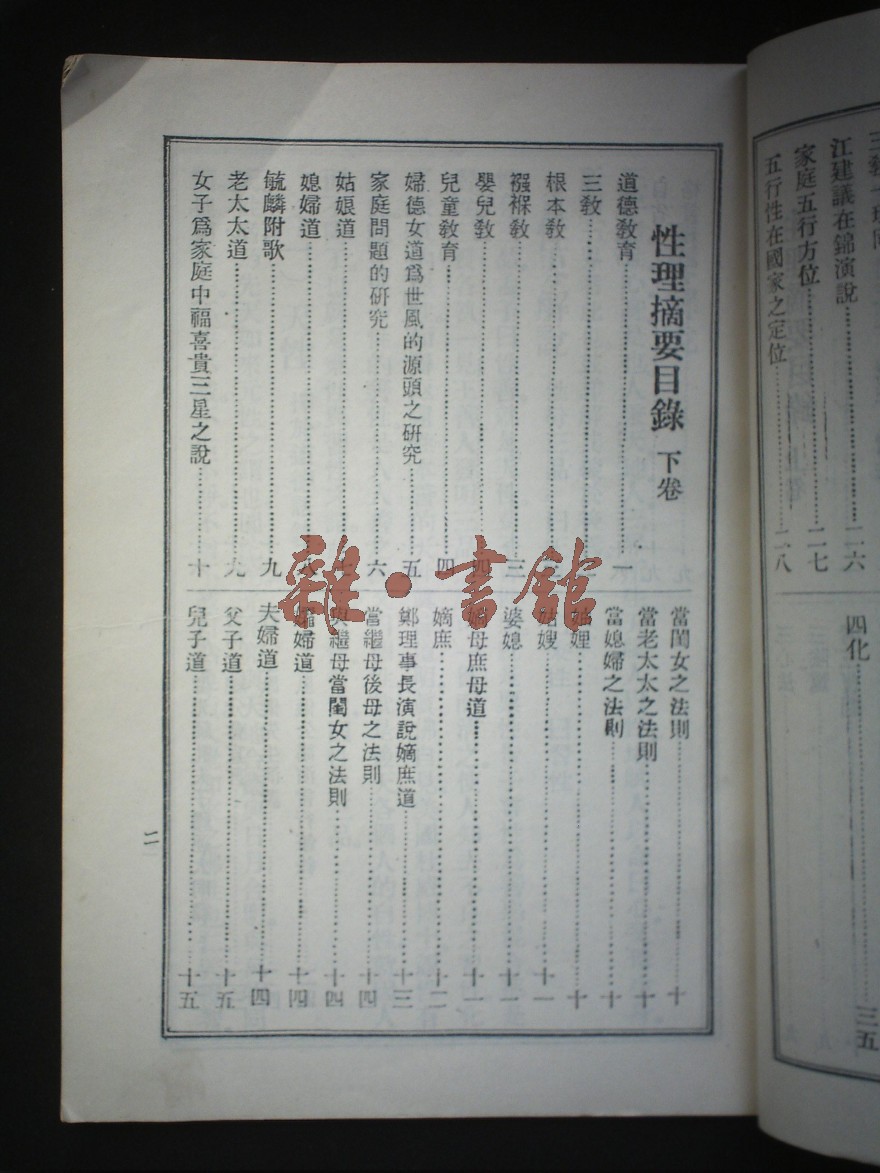 江建議在錦演說……二六
家庭五行方位……二七
五行性在國家之定位……二八
四化……三五
性理摘要目錄 下卷
道德敎育……一
三敎……
根本敎……
襁褓敎……三
嬰兒敎……四
兒童敎育……四
婦德女道爲世風的源頭之硏究……五
家庭問題的硏究……六
姑娘道……
媳婦道……八
毓麟附歌……九
老太太道……九
女子爲家庭中福喜貴三星之說……十
當閨女之法則……十
當老太太之法則……十
當媳婦之法則……十
妯娌……十
姑嫂……十一
婆媳……十一
嫡母庶母道……十一
嫡庶……十二
鄭理事長演說嫡庶道……十三
當繼母後母之法則……十四
與繼母當閨女之法則……十四
孀婦道……十四
夫婦道……十四
父子道……十五
兒子道……十五
二
雜·書館